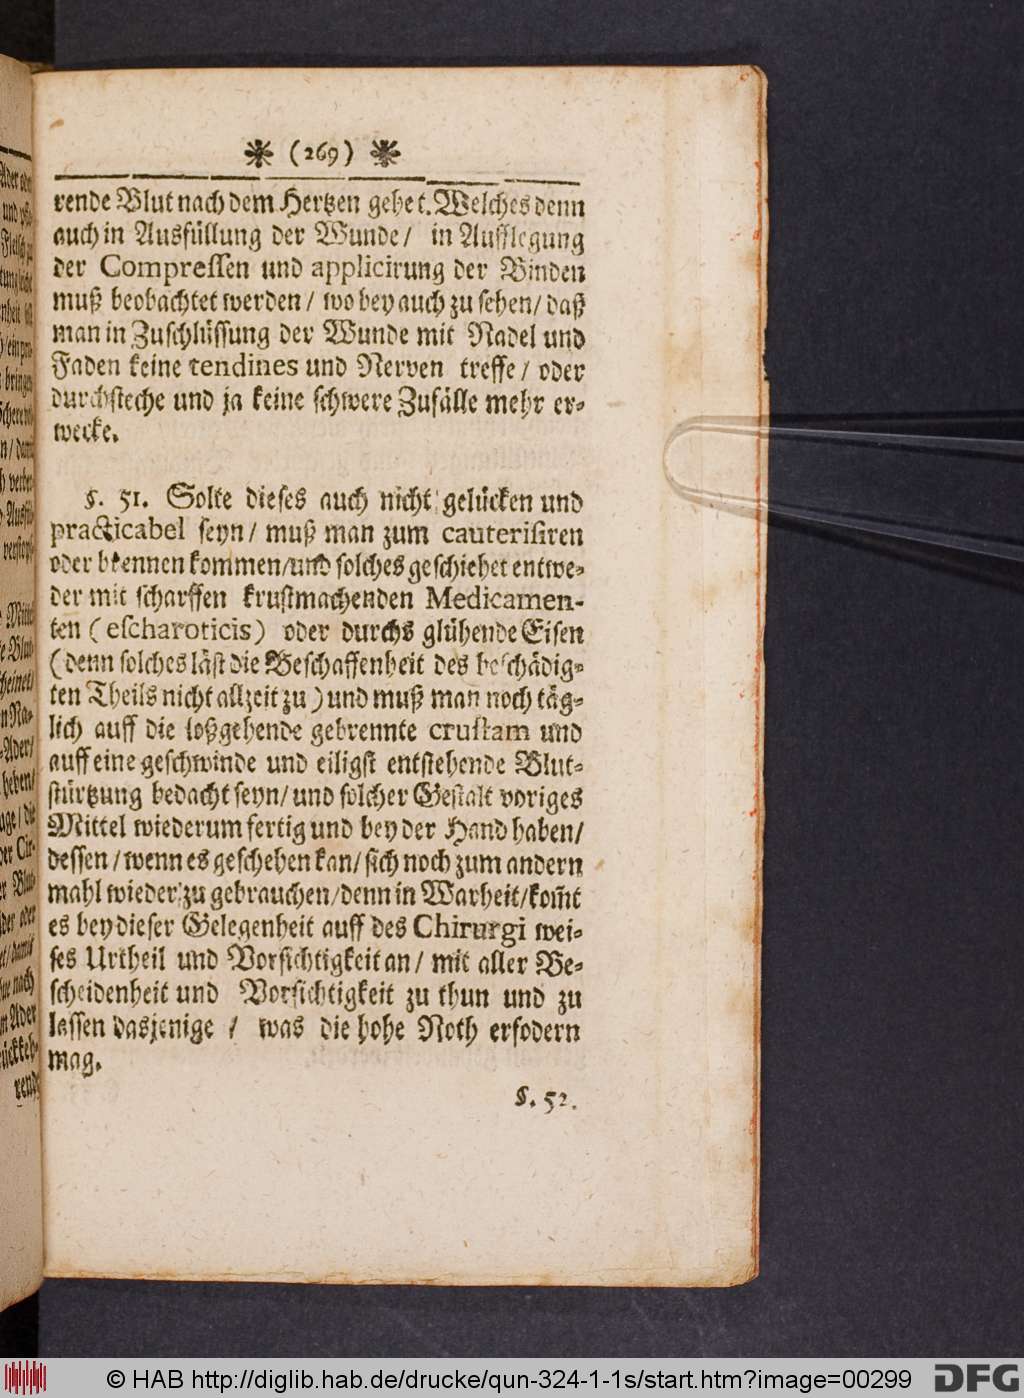 (269)
rende Blut nach dem Hertzen gehet. Welches denn
auch in Ausfüllung der Wunde/ in Aufflegung
der Compressen und applicirung der Binden
muß beobachtet werden/ wo bey auch zu sehen/ daß
man in Zuschlüssung der Wunde mit Nadel und
Faden keine tendines und Nerven treffe/ oder
durchsteche und ja keine schwere Zufälle mehr er-
wecke.
§. 51. Solte dieses auch nicht gelücken und
practicabel seyn/ muß man zum cauterisiren
oder brennen kommen/ und solches geschiehet entwe-
der mit scharffen krustmachenden Medicamen-
ten (escharoticis) oder durchs glühende Eisen
(denn solches läst die Beschaffenheit des beschädig-
ten Theils nicht allzeit zu) und muß man noch täg-
lich auff die loßgehende gebrennte crustam und
auff eine geschwinde und eiligst entstehende Blut-
stürtzung bedacht seyn/ und solcher Gestalt voriges
Mittel wiederum fertig und bey der Hand haben/
dessen/ wenn es geschehen kan/ sich noch zum andern
mahl wieder zu gebrauchen/ denn in Warheit/ kom̃t
es bey dieser Gelegenheit auff des Chirurgi wei-
ses Urtheil und Vorsichtigkeit an/ mit aller Be-
scheidenheit und Vorsichtigkeit zu thun und zu
lassen dasjenige/ was die hohe Noth erfodern
mag.
§. 52.
© HAB http://diglib.hab.de/drucke/qun-324-1-1s/start.htm?image=00299
DFG